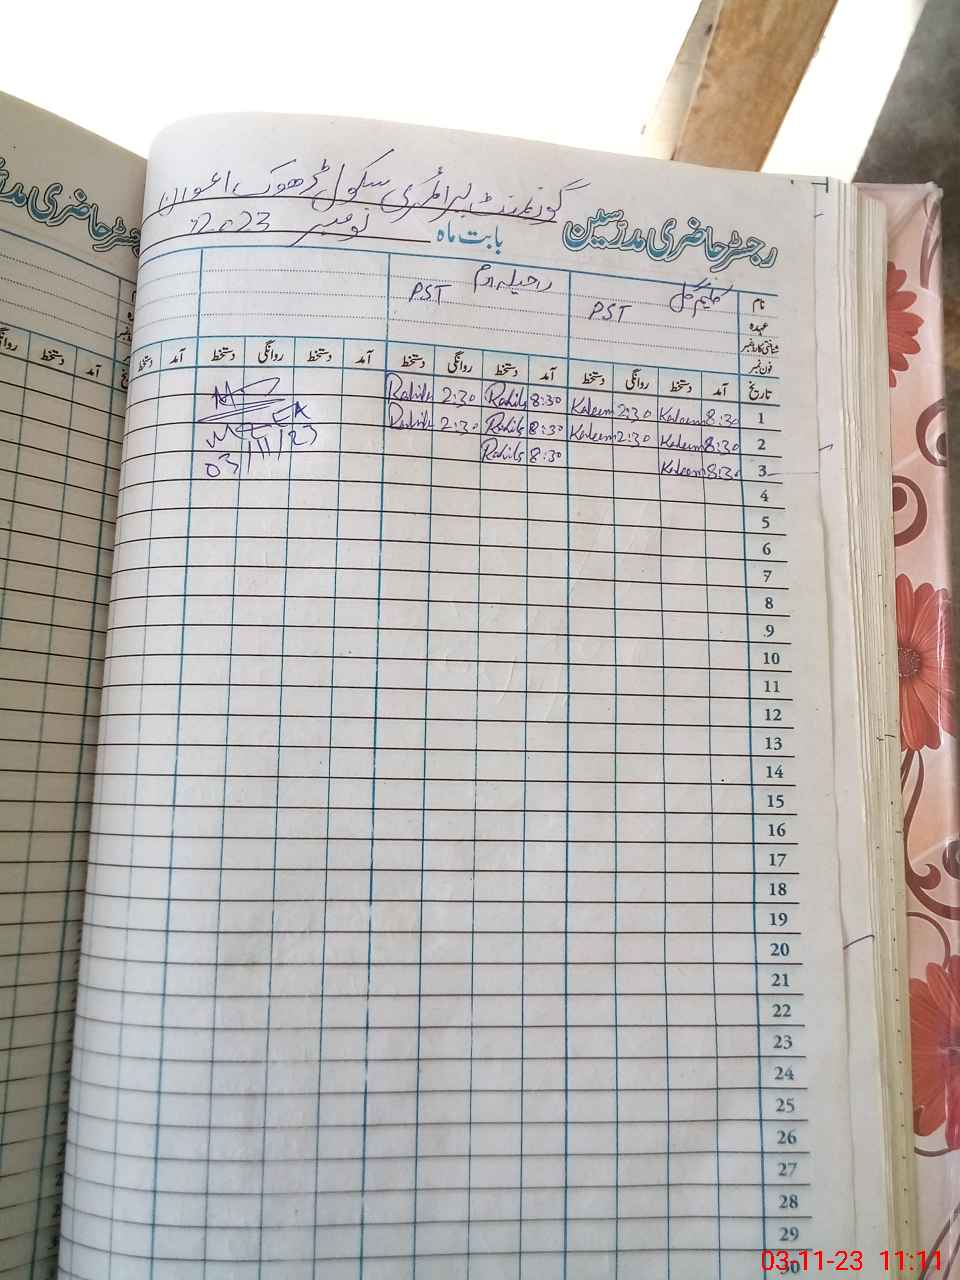 گورنمنٹ پرائمری سکول ڈھوک اعوان
رجسٹر حاضری مدرسین بابت ماہ نومبر 2023
نام کلیم گل راحیلہ ارم
عہدہ PST PST
شناختی کارڈ نمبر
فون نمبر
تاریخ آمد دستخط روانگی دستخط آمد دستخط روانگی دستخط آمد دستخط روانگی دستخط آمد دستخط
1 8:30 Kaleem 2:30 Kaleem 8:30 Rahila 2:30 Rahila
2 8:30 Kaleem 2:30 Kaleem 8:30 Rahila 2:30 Rahila
3 8:30 Kaleem 8:30 Rahila
MEA
03/11/23
4
5
6
7
8
9
10
11
12
13
14
15
16
17
18
19
20
21
22
23
24
25
26
27
28
29
30
03-11-23 11:11